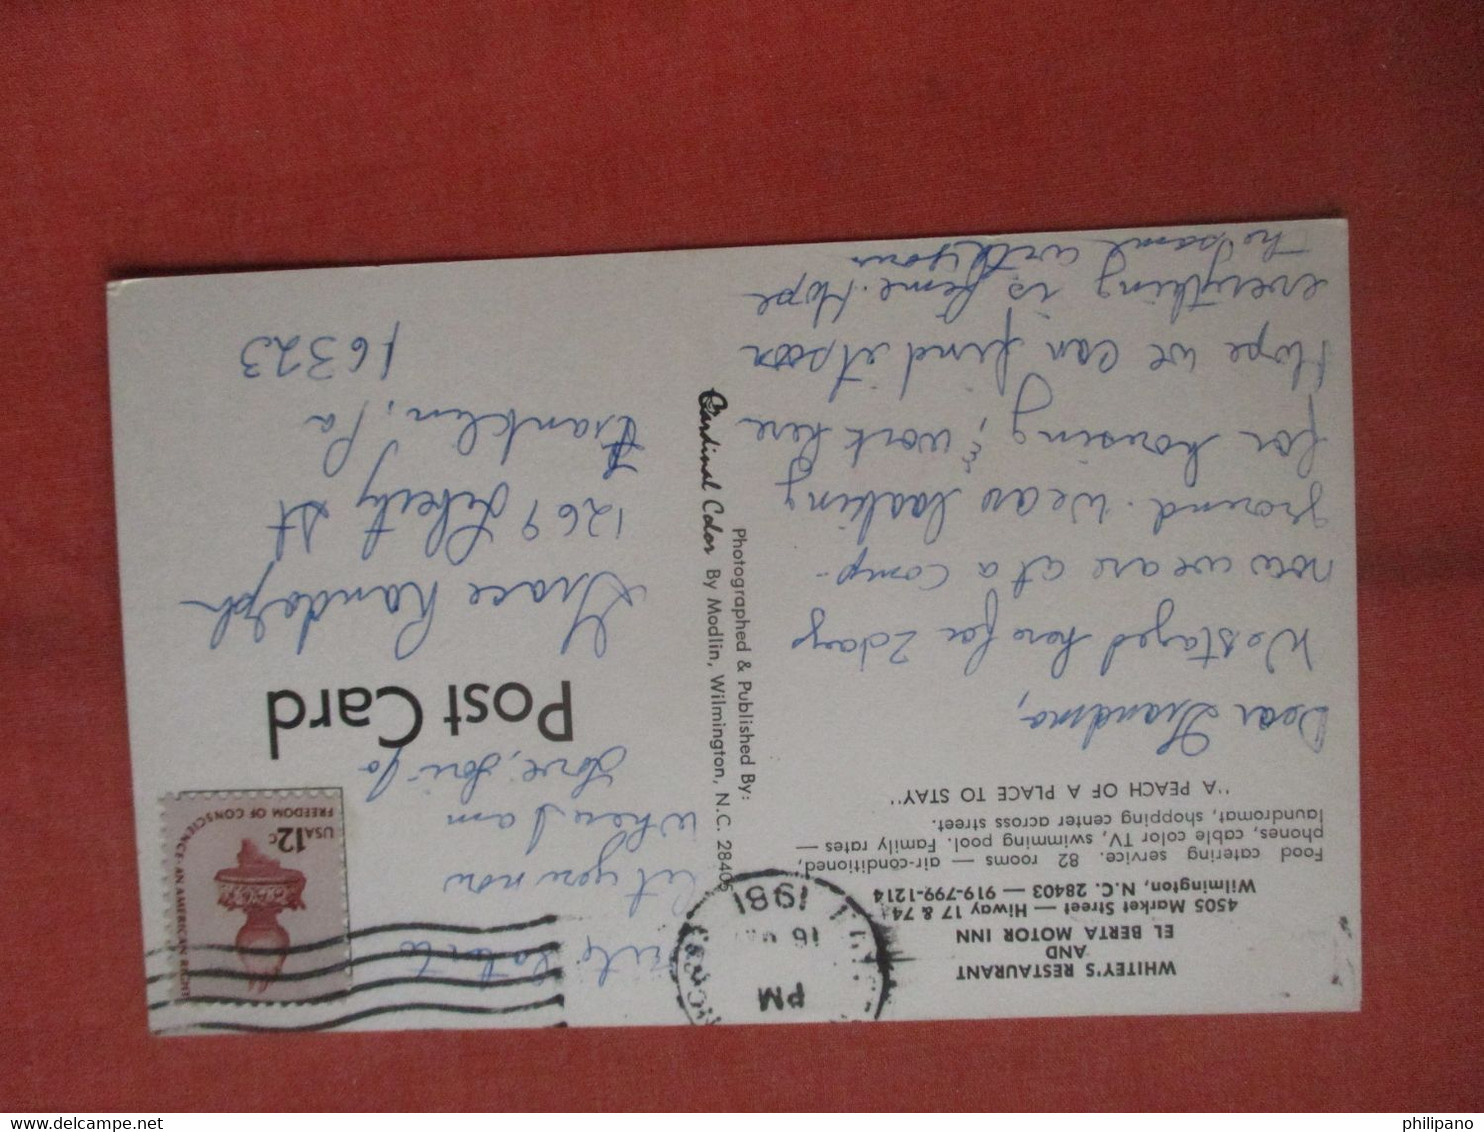 WHITEY'S RESTAURANT
AND
EL BERTA MOTOR INN
4505 Market Street — Hiway 17 & 74
Wilmington, N.C. 28403 — 919-799-1214
Food catering service. 82 rooms — air-conditioned,
phones, cable color TV, swimming pool. Family rates —
laundromat, shopping center across street.
"A PEACH OF A PLACE TO STAY"
Dear Grandma,
We stayed here for 2 days
now we are at a camp-
ground. We are looking
for housing, & work here
Hope we can find it soon
everything is fine. Hope
the same with you
Photographed & Published By:
Cardinal Color By Modlin, Wilmington, N.C. 28405
PM
16
1981
later to
let you now
where I am
Love, Lori-Jo
USA 12c
FREEDOM OF CONSCIENCE-AN AMERICAN RIGHT
Post Card
Grace Randolph
1269 Liberty St
Franklin, Pa
16323
philipano